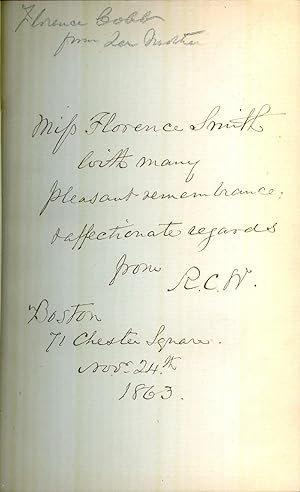 Florence Cobb
from her Mother
Miss Florence Smith
With many
pleasant remembrance,
& affectionate regards
from
R.C.W.
Boston
71 Chester Square.
Nov. 24.th
1863.